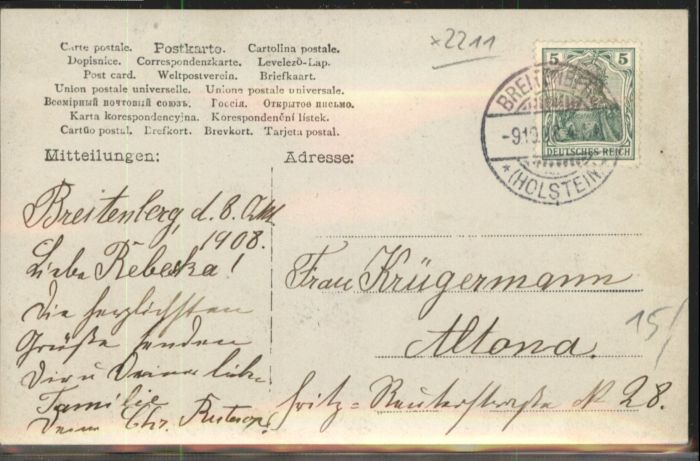 Carte postale. Postkarte. Cartolina postale.
Dopisnice. Correspondenzkarte. Levelező-Lap.
Post card. Weltpostverein. Briefkaart.
Union postale universelle. Unione postale universale.
Всемірный почтовый союзъ. Россія. Открытое письмо.
Karta korespondencyjna. Korespondenční listek.
Cartão postal. Brefkort. Brevkort. Tarjeta postal.
Mitteilungen: Adresse:
x2211
5 5
DEUTSCHES REICH
BREITENBERG
-9.10.08
* (HOLSTEIN) *
Breitenberg, d. 8. Okt.
1908.
Liebe Rebecka!
Die herzlichsten
Grüße senden
Dir u Deiner lieb.
Familie
Deine Chr.
Frau Krügermann
Altona.
Fritz-Reuterstraße № 28.
15/